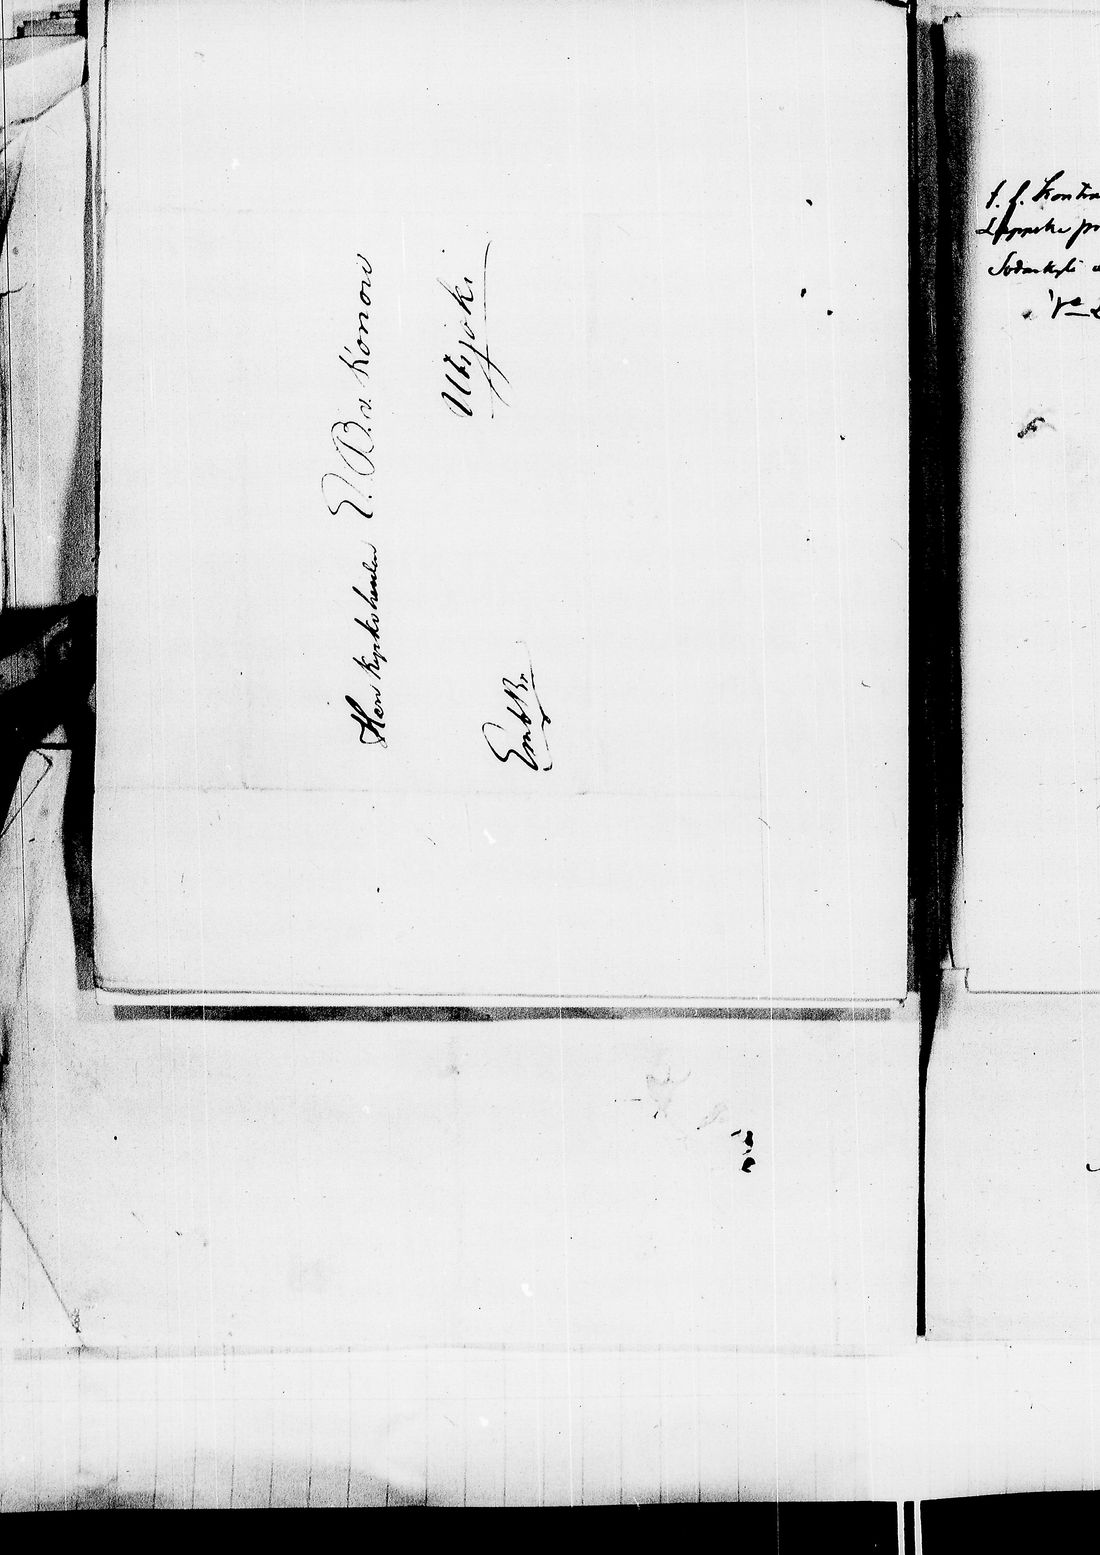 Herr Kyrkoherden E. B. v. Konow
Utsjoki
Emb. Br.
t. f. Kontra
Lappska pr
Sodankylä